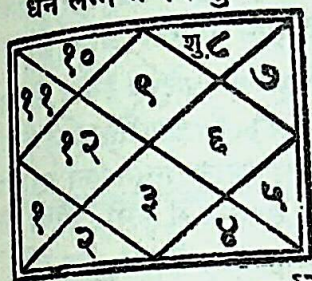 धन लग्न
१० शु.८
११ ९ ७
१२ ६
१ ३ ५
२ ४